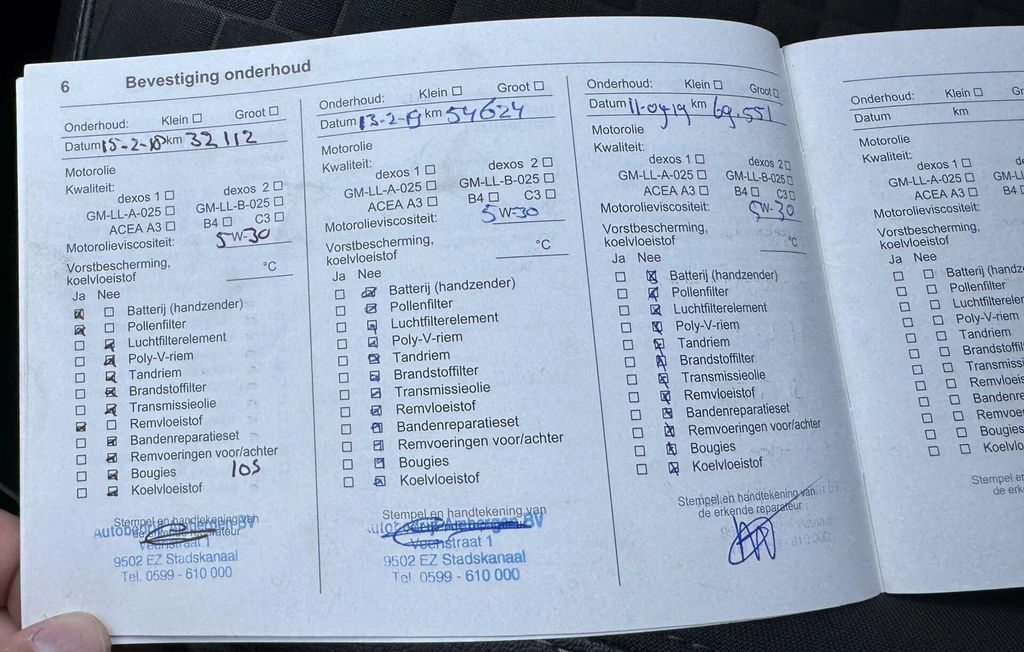 6 Bevestiging onderhoud
Onderhoud: Klein Groot
Datum 15-2-18 km 32112
Motorolie
Kwaliteit:
dexos 1 dexos 2
GM-LL-A-025 GM-LL-B-025
ACEA A3 B4 C3
Motorolieviscositeit: 5W-30
Vorstbescherming,
koelvloeistof °C
Ja Nee
Batterij (handzender)
Pollenfilter
Luchtfilterelement
Poly-V-riem
Tandriem
Brandstoffilter
Transmissieolie
Remvloeistof
Bandenreparatieset
Remvoeringen voor/achter
Bougies
Koelvloeistof
Stempel en handtekening van
de erkende reparateur
Veenstraat 1
9502 EZ Stadskanaal
Tel. 0599 - 610 000
Onderhoud: Klein Groot
Datum 13-2-19 km 54624
Motorolie
Kwaliteit:
dexos 1 dexos 2
GM-LL-A-025 GM-LL-B-025
ACEA A3 B4 C3
Motorolieviscositeit: 5W-30
Vorstbescherming,
koelvloeistof °C
Ja Nee
Batterij (handzender)
Pollenfilter
Luchtfilterelement
Poly-V-riem
Tandriem
Brandstoffilter
Transmissieolie
Remvloeistof
Bandenreparatieset
Remvoeringen voor/achter
Bougies
Koelvloeistof
Stempel en handtekening van
BV
Veenstraat 1
9502 EZ Stadskanaal
Tel. 0599 - 610 000
Onderhoud: Klein Groot
Datum km 69.551
Motorolie
Kwaliteit:
dexos 1 dexos 2
GM-LL-A-025 GM-LL-B-025
ACEA A3 B4 C3
Motorolieviscositeit: 5W-30
Vorstbescherming,
koelvloeistof °C
Ja Nee
Batterij (handzender)
Pollenfilter
Luchtfilterelement
Poly-V-riem
Tandriem
Brandstoffilter
Transmissieolie
Remvloeistof
Bandenreparatieset
Remvoeringen voor/achter
Bougies
Koelvloeistof
Stempel en handtekening van
de erkende reparateur
Onderhoud: Klein Gr
Datum km
Motorolie
Kwaliteit:
dexos 1 de
GM-LL-A-025 GM-LL
ACEA A3
Motorolieviscositeit:
Vorstbescherming,
koelvloeistof
Ja Nee
Batterij (handze
Pollenfilter
Luchtfilterelem
Poly-V-riem
Tandriem
Brandstoffil
Transmissi
Remvloeis
Bandenre
Remvoe
Bougies
Koelvlo
Stempel en
de erke